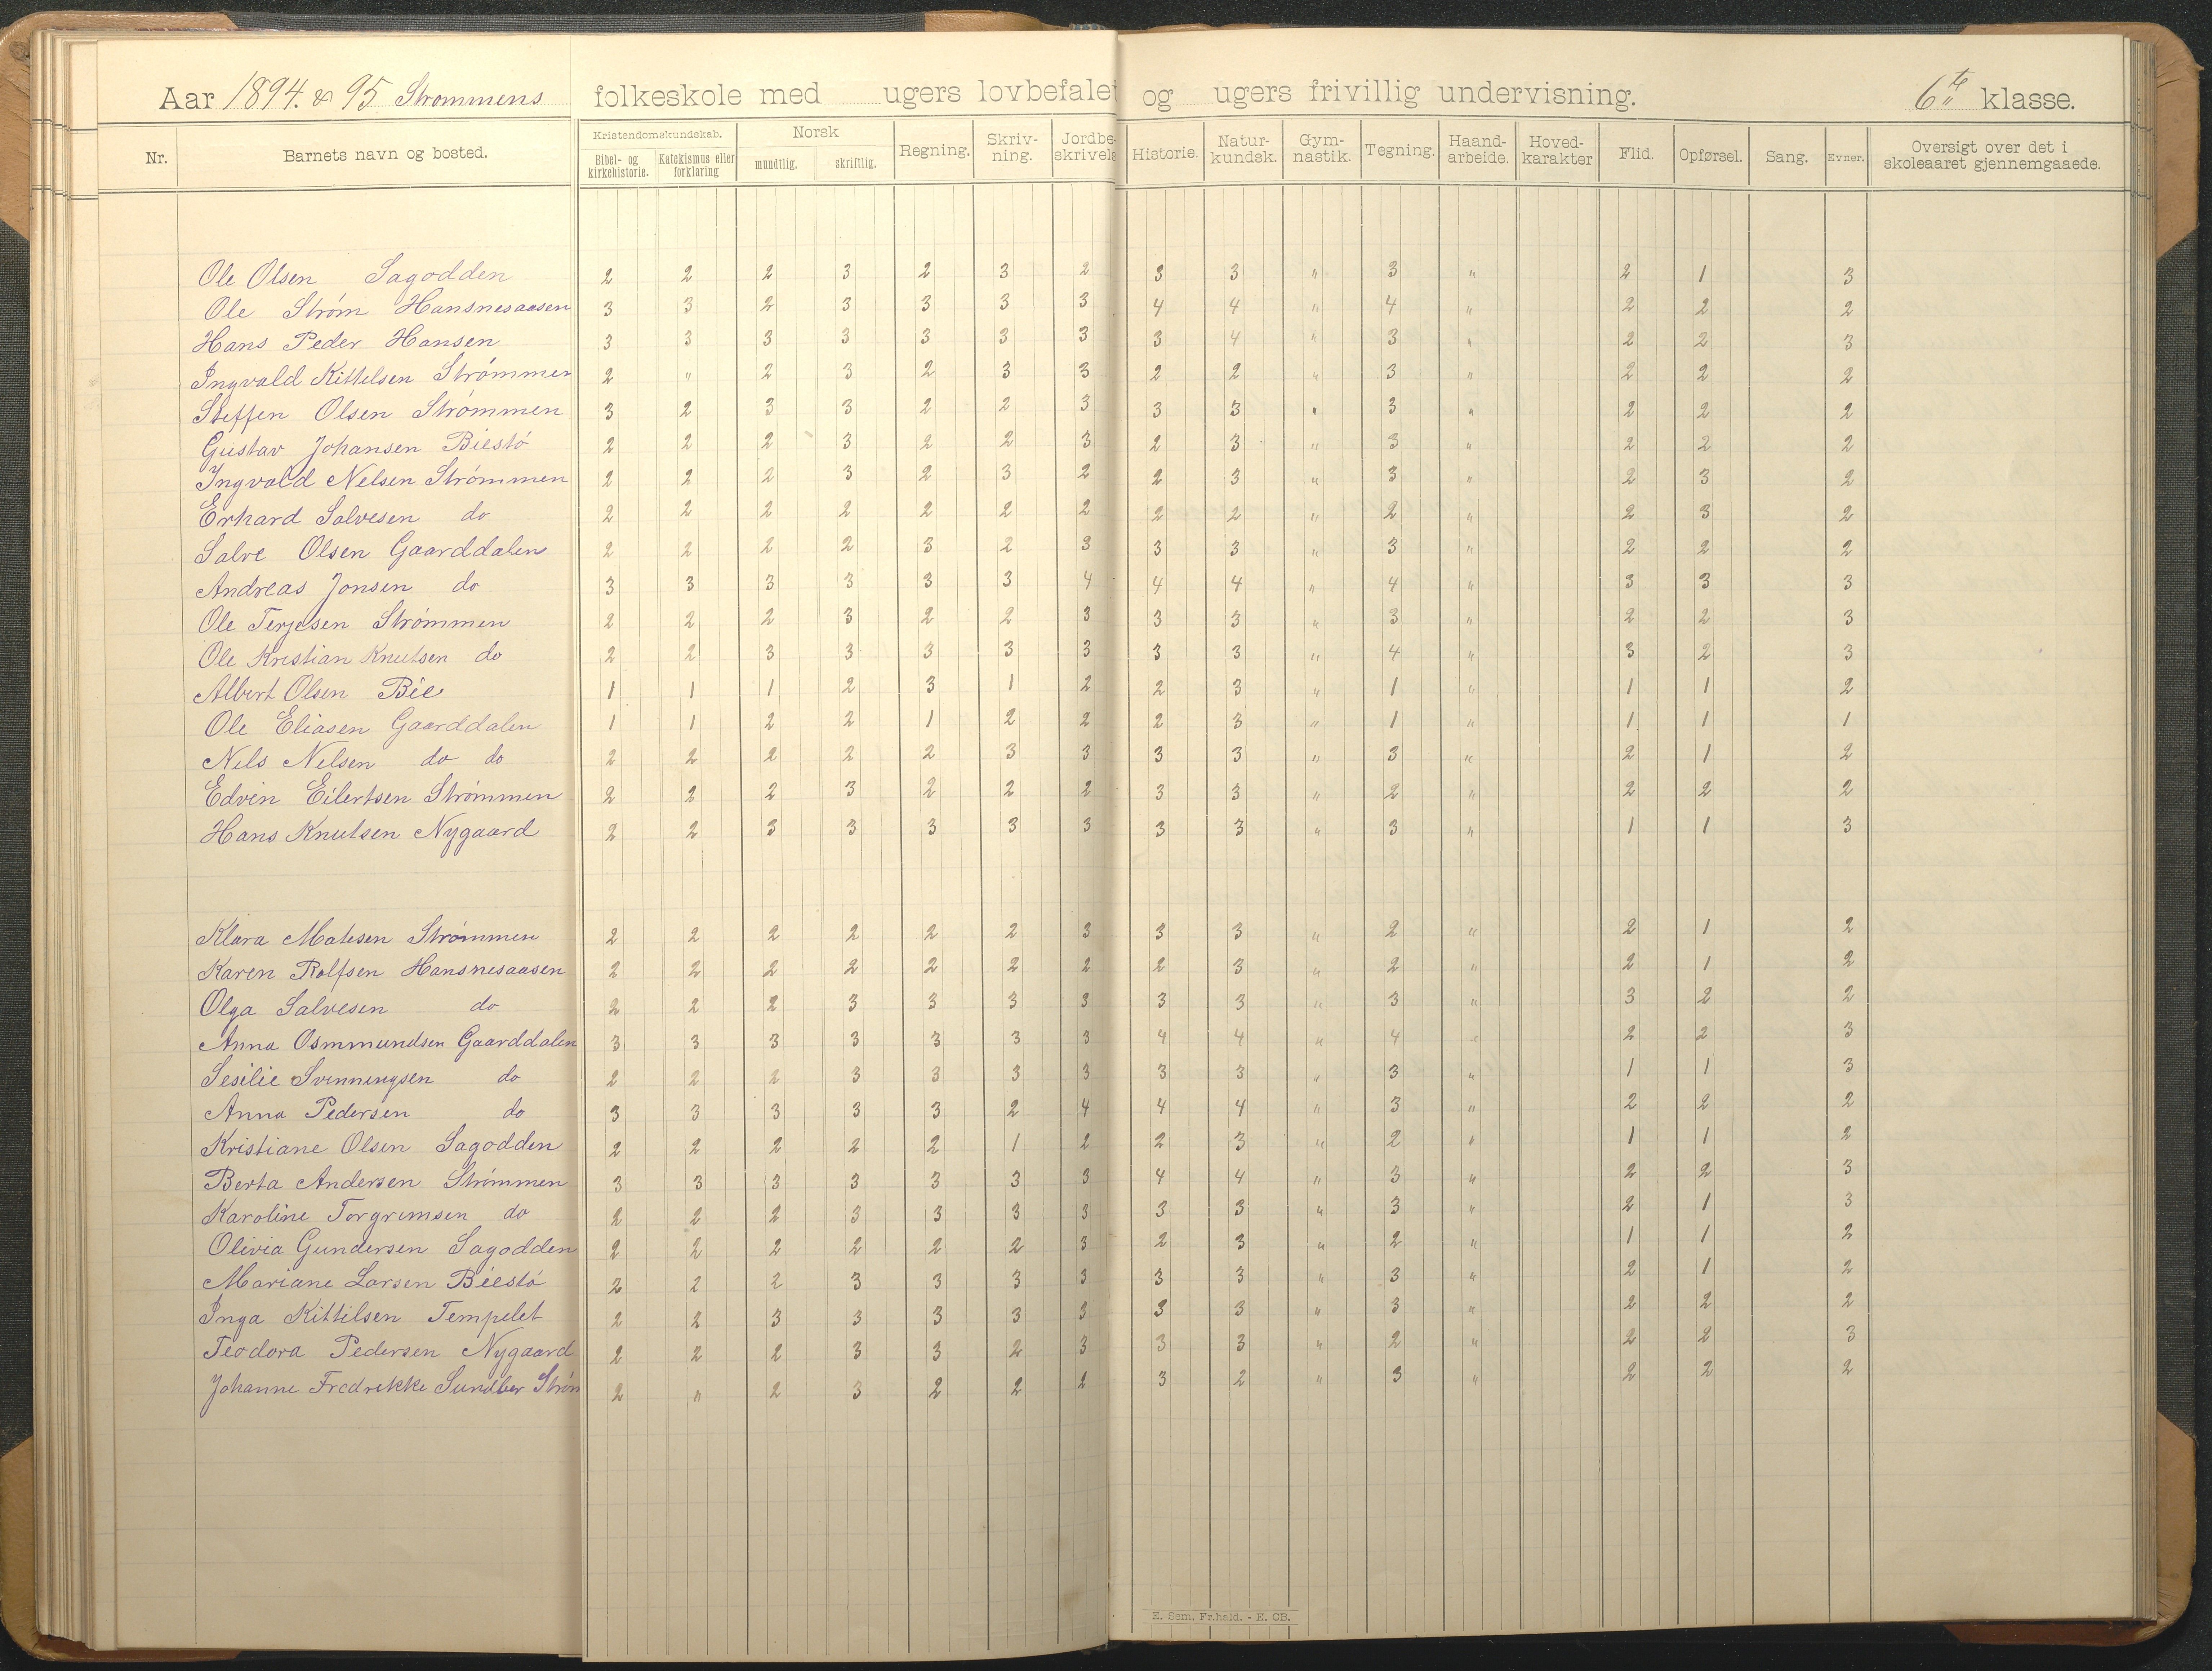 Aar 1894. & 95 Strømmens folkeskole med ugers lovbefalet og ugers frivillig undervisning. 6te klasse.
Nr. Barnets navn og bosted. Kristendomskundskab. Bibel- og kirkehistorie. Katekismus eller forklaring Norsk mundtlig. skriftlig. Regning. Skriv-ning. Jordbe-skrivels Historie. Natur-kundsk. Gym-nastik. Tegning. Haand-arbeide. Hoved-karakter Flid. Opførsel. Sang. Evner. Oversigt over det i skoleaaret gjennemgaaede.
Ole Olsen Sagodden 2 2 2 3 2 3 2 3 3 " 3 " 2 1 3
Ole Strøm Hansnesaasen 3 3 2 3 3 3 3 4 4 " 4 " 2 2 2
Hans Peder Hansen 3 3 3 3 3 3 3 3 4 " 3 " 2 2 3
Ingvald Kittelsen Strømmen 2 " 2 3 2 3 3 2 2 " 3 " 2 2 2
Steffen Olsen Strømmen 3 2 3 3 2 2 3 3 3 " 3 " 2 2 2
Gustav Johansen Biestø 2 2 2 3 2 2 3 2 3 " 3 " 2 2 2
Ingvald Nelsen Strømmen 2 2 2 3 2 3 2 2 3 " 3 " 2 3 2
Erhard Salvesen do 2 2 2 2 2 2 2 2 2 " 2 " 2 3 2
Salve Olsen Gaarddalen 2 2 2 2 3 2 3 3 3 " 3 " 2 2 2
Andreas Jonsen do 3 3 3 3 3 3 4 4 4 " 4 " 3 3 3
Ole Terjesen Strømmen 2 2 2 3 2 2 3 3 3 " 3 " 2 2 3
Ole Kristian Knutsen do 2 2 3 3 3 3 3 3 3 " 4 " 3 2 3
Albert Olsen Bie 1 1 1 2 3 1 2 2 3 " 1 " 1 1 2
Ole Eliasen Gaarddalen 1 1 2 2 1 2 2 2 3 " 1 " 1 1 1
Nels Nelsen do do 2 2 2 2 2 3 3 3 3 " 3 " 2 1 2
Edvin Eilertsen Strømmen 2 2 2 3 2 2 2 3 3 " 2 " 2 2 2
Hans Knutsen Nygaard 2 2 3 3 3 3 3 3 3 " 3 " 1 1 3
Klara Matesen Strømmen 2 2 2 2 2 2 3 3 3 " 2 " 2 1 2
Karen Rolfsen Hansnesaasen 2 2 2 2 2 2 2 2 3 " 2 " 2 1 2
Olga Salvesen do 2 2 2 3 3 3 3 3 3 " 3 " 3 2 2
Anna Osmmundsen Gaarddalen 3 3 3 3 3 3 3 4 4 " 4 " 2 2 3
Sesilie Svenningsen do 2 2 2 3 3 3 3 3 3 " 3 " 1 1 3
Anna Pedersen do 3 3 3 3 3 2 4 4 4 " 3 " 2 2 2
Kristiane Olsen Sagodden 2 2 2 2 2 1 2 2 3 " 2 " 1 1 2
Berta Andersen Strømmen 3 3 3 3 3 3 3 4 4 " 3 " 2 2 3
Karoline Torgrimsen do 2 2 2 3 3 3 3 3 3 " 3 " 2 1 3
Olivia Gundersen Sagodden 2 2 2 2 2 2 3 2 3 " 2 " 1 1 2
Mariane Larsen Biestø 2 2 2 3 3 3 3 3 3 " 3 " 2 1 2
Inga Kittilsen Tempelet 2 2 3 3 3 3 3 3 3 " 3 " 2 2 2
Teodora Pedersen Nygaard 2 2 2 3 3 2 3 3 3 " 2 " 2 2 3
Johanne Fredrekke Sundber Strøm 2 " 2 3 2 2 2 3 2 " 3 " 2 2 2
E. Sem, Fr.hald. - E. CB.